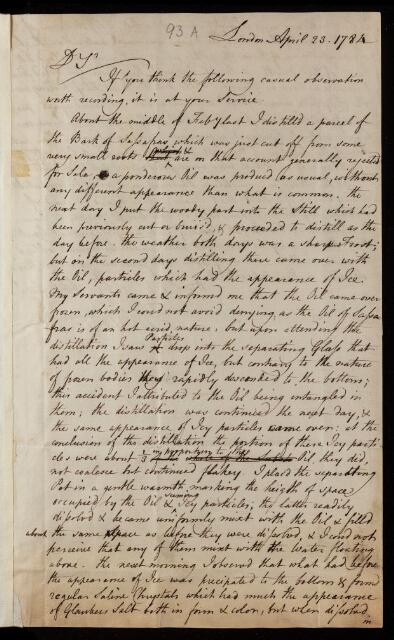 93 A
London April 23. 1784
D Sr
If you think the following casual observation
worth recording, it is at your Service
About the middle of Feby last I distilld a parcel of
the Bark of Sassafras, which was just cut off from some
very small roots & are on that account generally rejected
for Sale, a ponderous Oil was produced (as usual) without
any different appearance than what is common. the
next day I put the woody part into the Still which had
been previously cut or bruis'd, & proceeded to distill as the
day before. the weather both days was a sharp Frost;
but on the second days distilling there came over with
the Oil, particles which had the appearance of Ice
My Servants came & informd me that the Oil came over
frozen, which I coud not avoid denying, as the Oil of Sassa
fras is of an hot acrid nature. but upon attending the
distillation I saw Particles drop into the separating Glass that
had all the appearance of Ice, but contrary to the nature
of frozen bodies they rapidly descended to the bottom;
this accident I attributed to the Oil being entangled in
them; the distillation was continued the next day, &
the same appearance of Icy particles came over: at the
conclusion of this distillation the portion of these Icy parti-
cles were about in proportion to the Oil they did
not coalesce but continued flakey I placed the separating
Pot in a gentle warmth, marking the heigth of space
occupied by the Oil & seeming Icy particles; the latter readily
disolvd & became uniformly mixt with the Oil & filld
about the same space as before they were disolvd, & I coud not
perceive that any of them mixt with the Water floating
above. the next morning I observd that what had before
the appearance of Ice was precipitated to the bottom & formd
regular Saline Chrystals which had much the appearance
of Glaubers Salt both in form & color, but when disolvd
in